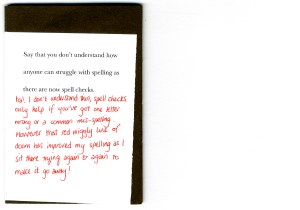 Say that you don't understand how
anyone can struggle with spelling as
there are now spell checks.
I don't understand this, spell checks
only help if you've got one letter
wrong or a common mis-spelling.
However that red wiggly line of
doom has improved my spelling as I
sit there trying again & again to
make it go away!